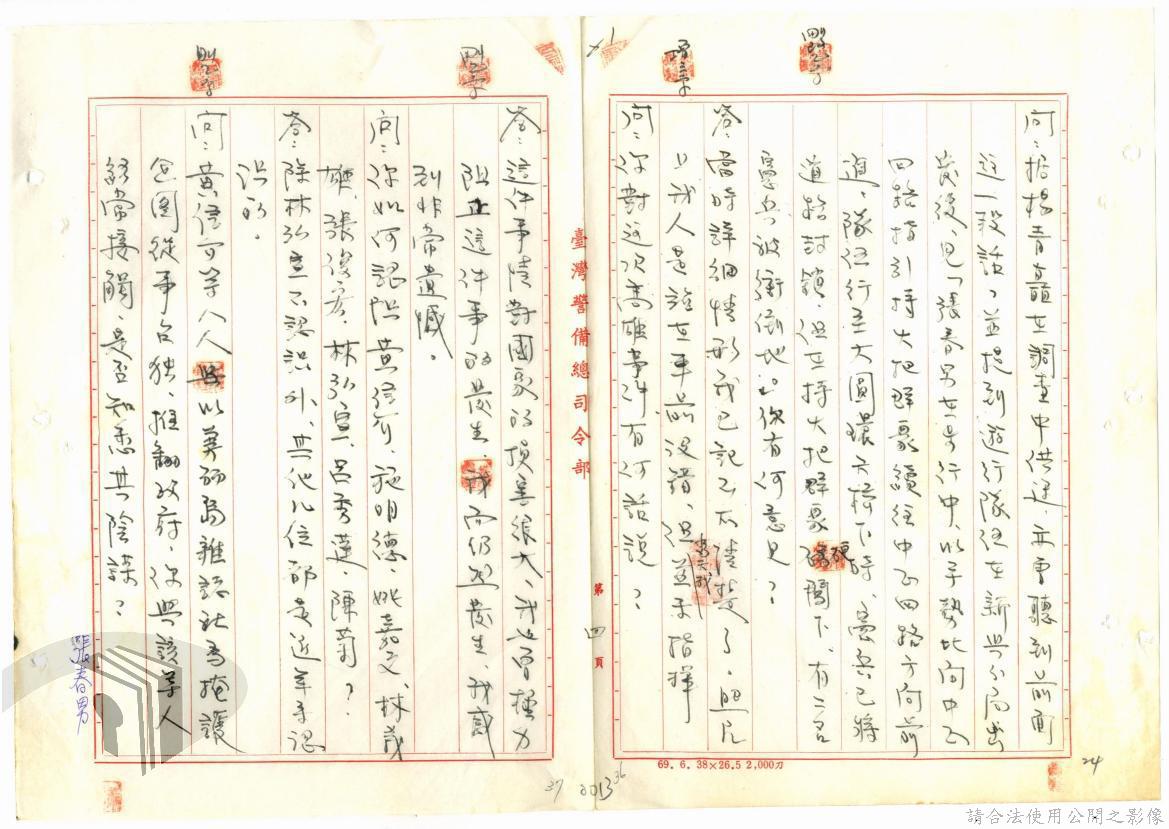 問：据楊青矗在調查中供述，並曾聽到前面
這一段話，並提到遊行隊伍在新興分局出
發後，見「張春男在導行中，以手勢比向中正
四路指引持火把群衆續往中正四路方向前
進，隊伍行至大圓環天橋下時，憲兵已將
道路封鎖，但在持火把群衆硬闖下，有二名
憲兵被衝倒地」，你有何意見？
答：當時詳細情形我已記不清楚了，照片
上我人是站在車前沒錯，但並未指揮
問：你對這次高雄事件有何話說？
臺灣警備總司令部
第四頁
答：這件事情對國家的損害很大，我也曾極力
阻止這件事的發生，而仍然發生，我感
到非常遺憾。
問：你如何認識黃信介、施明德、姚嘉文、林義
雄、張俊宏、林弘宣、呂秀蓮、陳菊？
答：除林弘宣不認識外，其他几位都是近年來認
識的。
問：黃信介等人以美麗島雜誌社為掩護
企圖從事台独、推翻政府，你與該等人
經常接觸，是否知悉其陰謀？
張春男
69. 6. 38×26.5 2,000刀
24
37
0013
36
請合法使用公開之影像